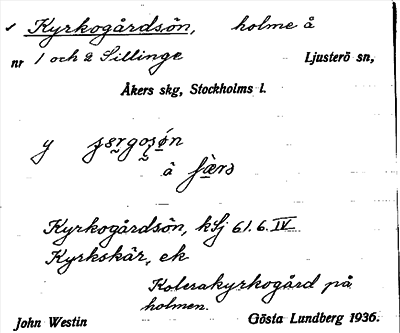 Kyrkogårdsön, holme å
nr 1 och 2 Sillinge Ljusterö sn,
Åkers skg, Stockholms l.
y
å
Kyrkogårdsön, kSj 61.6.IV
Kyrkskär, ek
Kolerakyrkogård på
holmen.
John Westin Gösta Lundberg 1936.